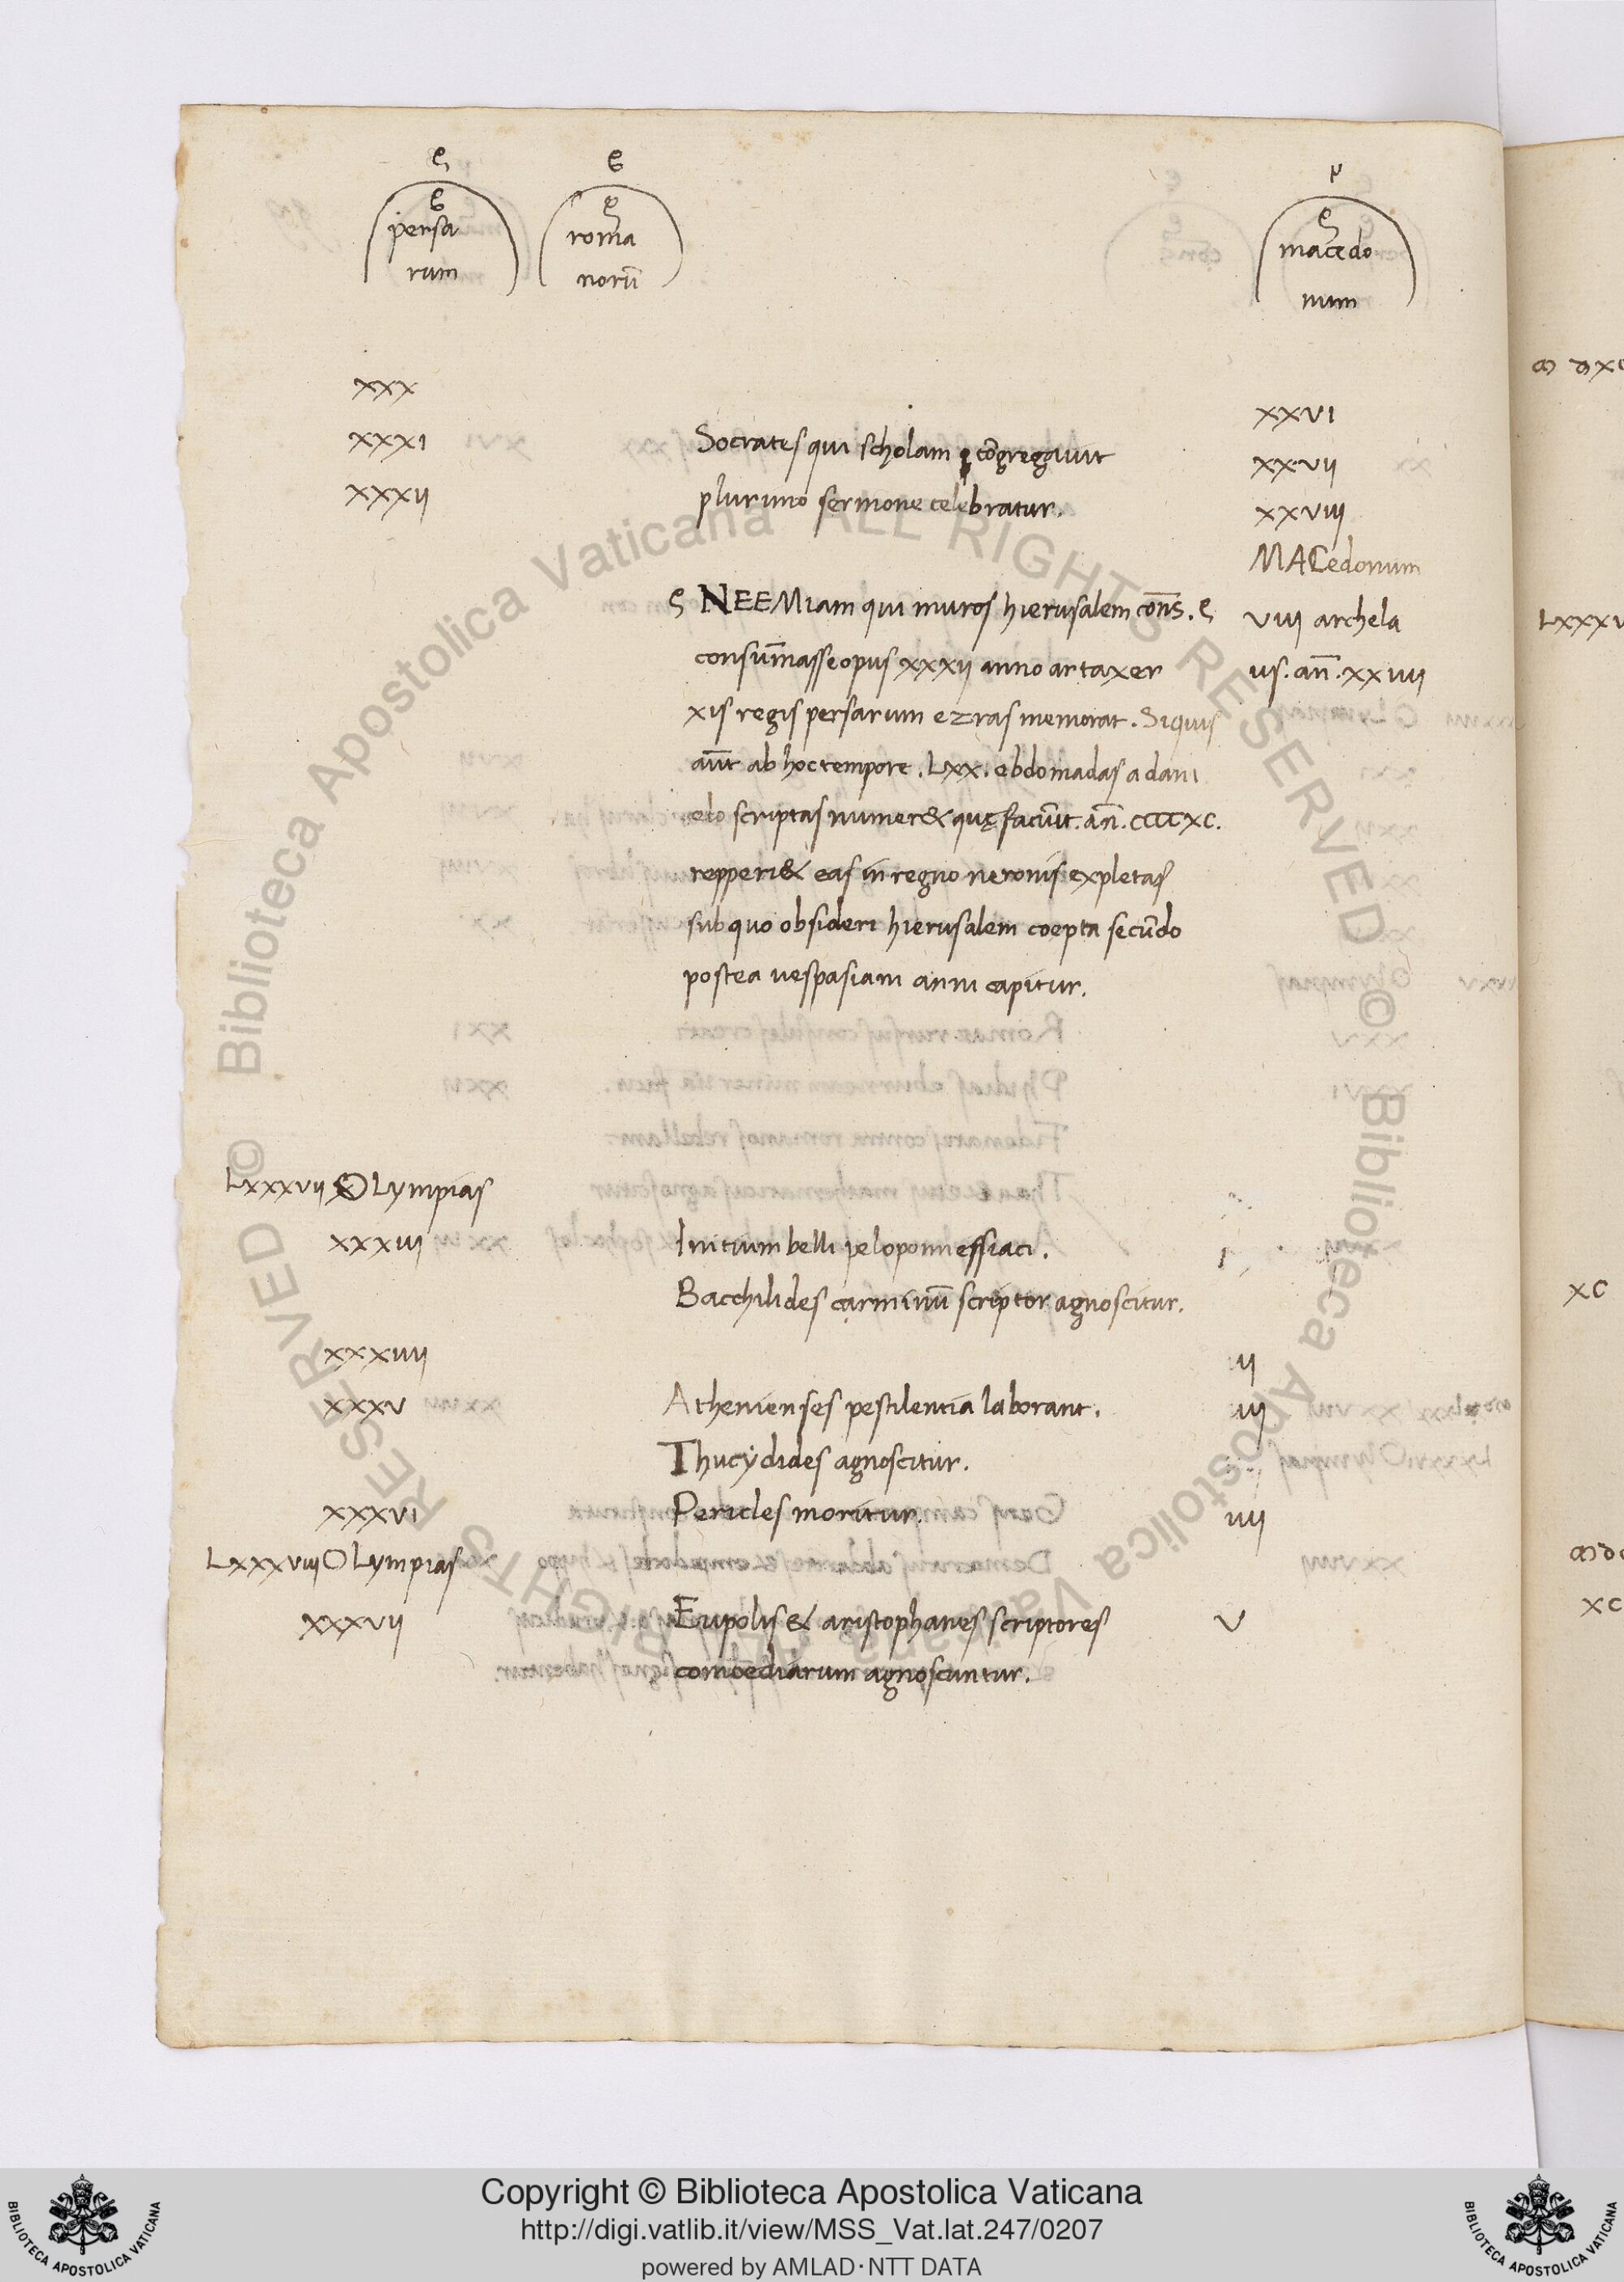 persa
rum
roma
norū
macedo
num
xxx
xxvi
xxxi
Socrates qui scholam cōgregauit
xxvii
xxxii
plurimo sermone celebratur.
xxviii
MACedonum
NEEMiam qui muros hierusalem cōns.
viii archela
consūmasse opus xxxii anno artaxer
us. añ. xxiiii
xis regis persarum ezras memorat. Siquis
aūt ab hoc tempore. Lxx. ebdomadas a dani
elo scriptas numer& quę faciūt. añ. ccccxc.
repperi& eas in regno neronis expletas
sub quo obsideri hierusalem coepta secūdo
postea uespasiani anni capitur.
Lxxxvii OLympias
xxxiii
Initium belli peloponnessiaci.
i
Bacchilides carminū scriptor agnoscitur.
xxxiiii
ii
xxxv
Athenienses pestilentia laborant.
iii
Thucydides agnoscitur.
xxxvi
Pericles moritur.
iiii
Lxxxviii OLympias
xxxvii
Eupolis & aristophanes scriptores
v
comoediarum agnoscuntur.
Lxxxv
xc
xc
© Biblioteca Apostolica Vaticana ALL RIGHTS RESERVED
© Biblioteca Apostolica Vaticana ALL RIGHTS RESERVED
Copyright © Biblioteca Apostolica Vaticana
http://digi.vatlib.it/view/MSS_Vat.lat.247/0207
powered by AMLAD·NTT DATA
BIBLIOTECA APOSTOLICA VATICANA
BIBLIOTECA APOSTOLICA VATICANA